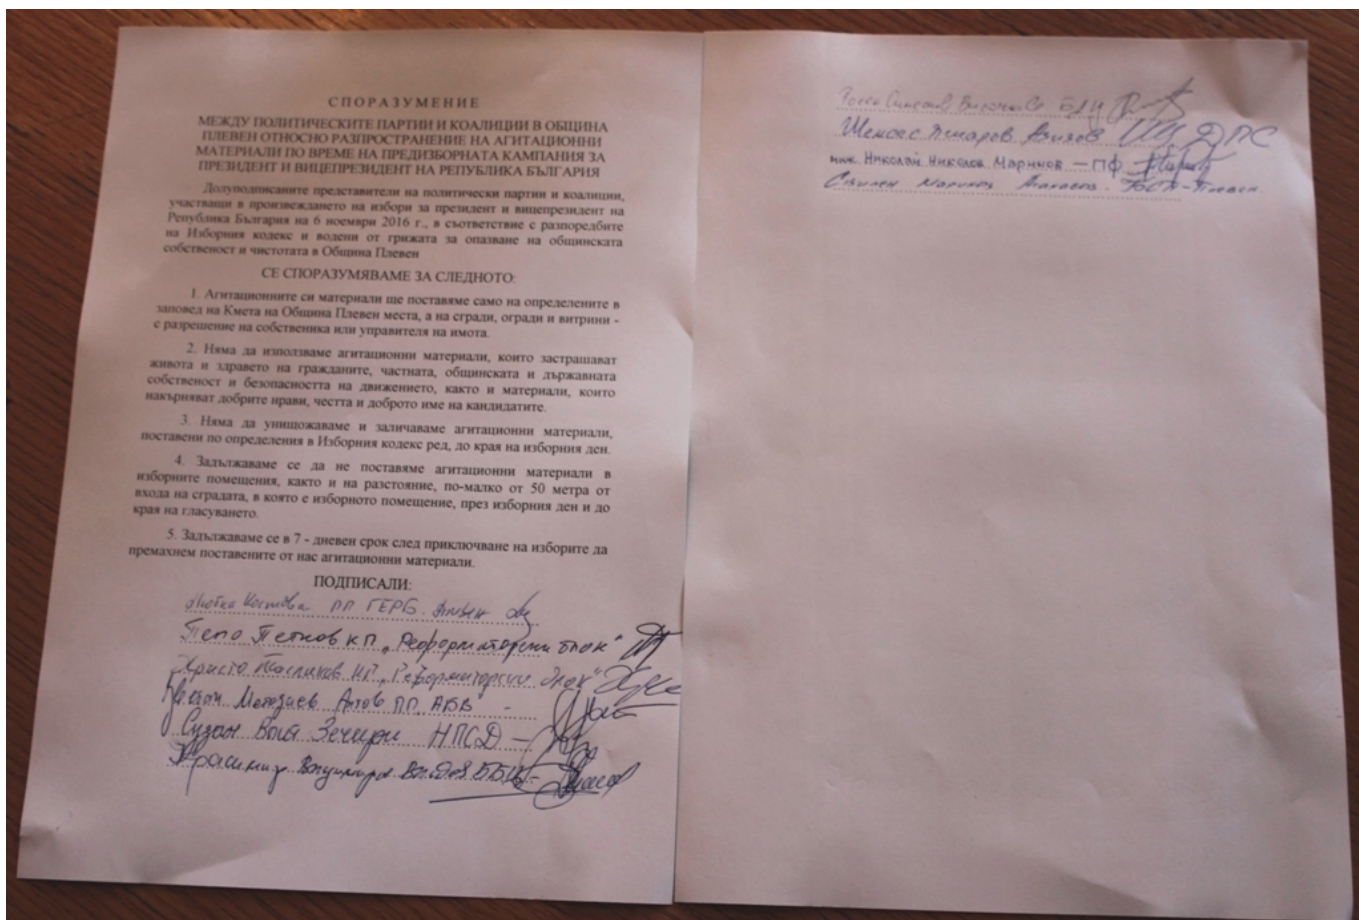 СПОРАЗУМЕНИЕ
МЕЖДУ ПОЛИТИЧЕСКИТЕ ПАРТИИ И КОАЛИЦИИ В ОБЩИНА
ПЛЕВЕН ОТНОСНО РАЗПРОСТРАНЕНИЕ НА АГИТАЦИОННИ
МАТЕРИАЛИ ПО ВРЕМЕ НА ПРЕДИЗБОРНАТА КАМПАНИЯ ЗА
ПРЕЗИДЕНТ И ВИЦЕПРЕЗИДЕНТ НА РЕПУБЛИКА БЪЛГАРИЯ
Долуподписаните представители на политически партии и коалиции,
участващи в произвеждането на избори за президент и вицепрезидент на
Република България на 6 ноември 2016 г., в съответствие с разпоредбите
на Изборния кодекс и водени от грижата за опазване на общинската
собственост и чистотата в Община Плевен
СЕ СПОРАЗУМЯВАМЕ ЗА СЛЕДНОТО:
1. Агитационните си материали ще поставяме само на определените в
заповед на Кмета на Община Плевен места, а на сгради, огради и витрини -
с разрешение на собственика или управителя на имота.
2. Няма да използваме агитационни материали, които застрашават
живота и здравето на гражданите, частната, общинската и държавната
собственост и безопасността на движението, както и материали, които
накърняват добрите нрави, честта и доброто име на кандидатите.
3. Няма да унищожаваме и заличаваме агитационни материали,
поставени по определения в Изборния кодекс ред, до края на изборния ден.
4. Задължаваме се да не поставяме агитационни материали в
изборните помещения, както и на разстояние, по-малко от 50 метра от
входа на сградата, в която е изборното помещение, през изборния ден и до
края на гласуването.
5. Задължаваме се в 7 - дневен срок след приключване на изборите да
премахнем поставените от нас агитационни материали.
ПОДПИСАЛИ:
Костова ПП ГЕРБ - Плевен
Петков КП "Реформаторски блок"
Христо КП "Реформаторски блок"
Методиев ПП "АБВ" -
Сузан НПСД -
Красимир ББЦ -
БДЦ
ДПС
инж. Николай Николов Маринов - ПФ
БСП - Плевен.